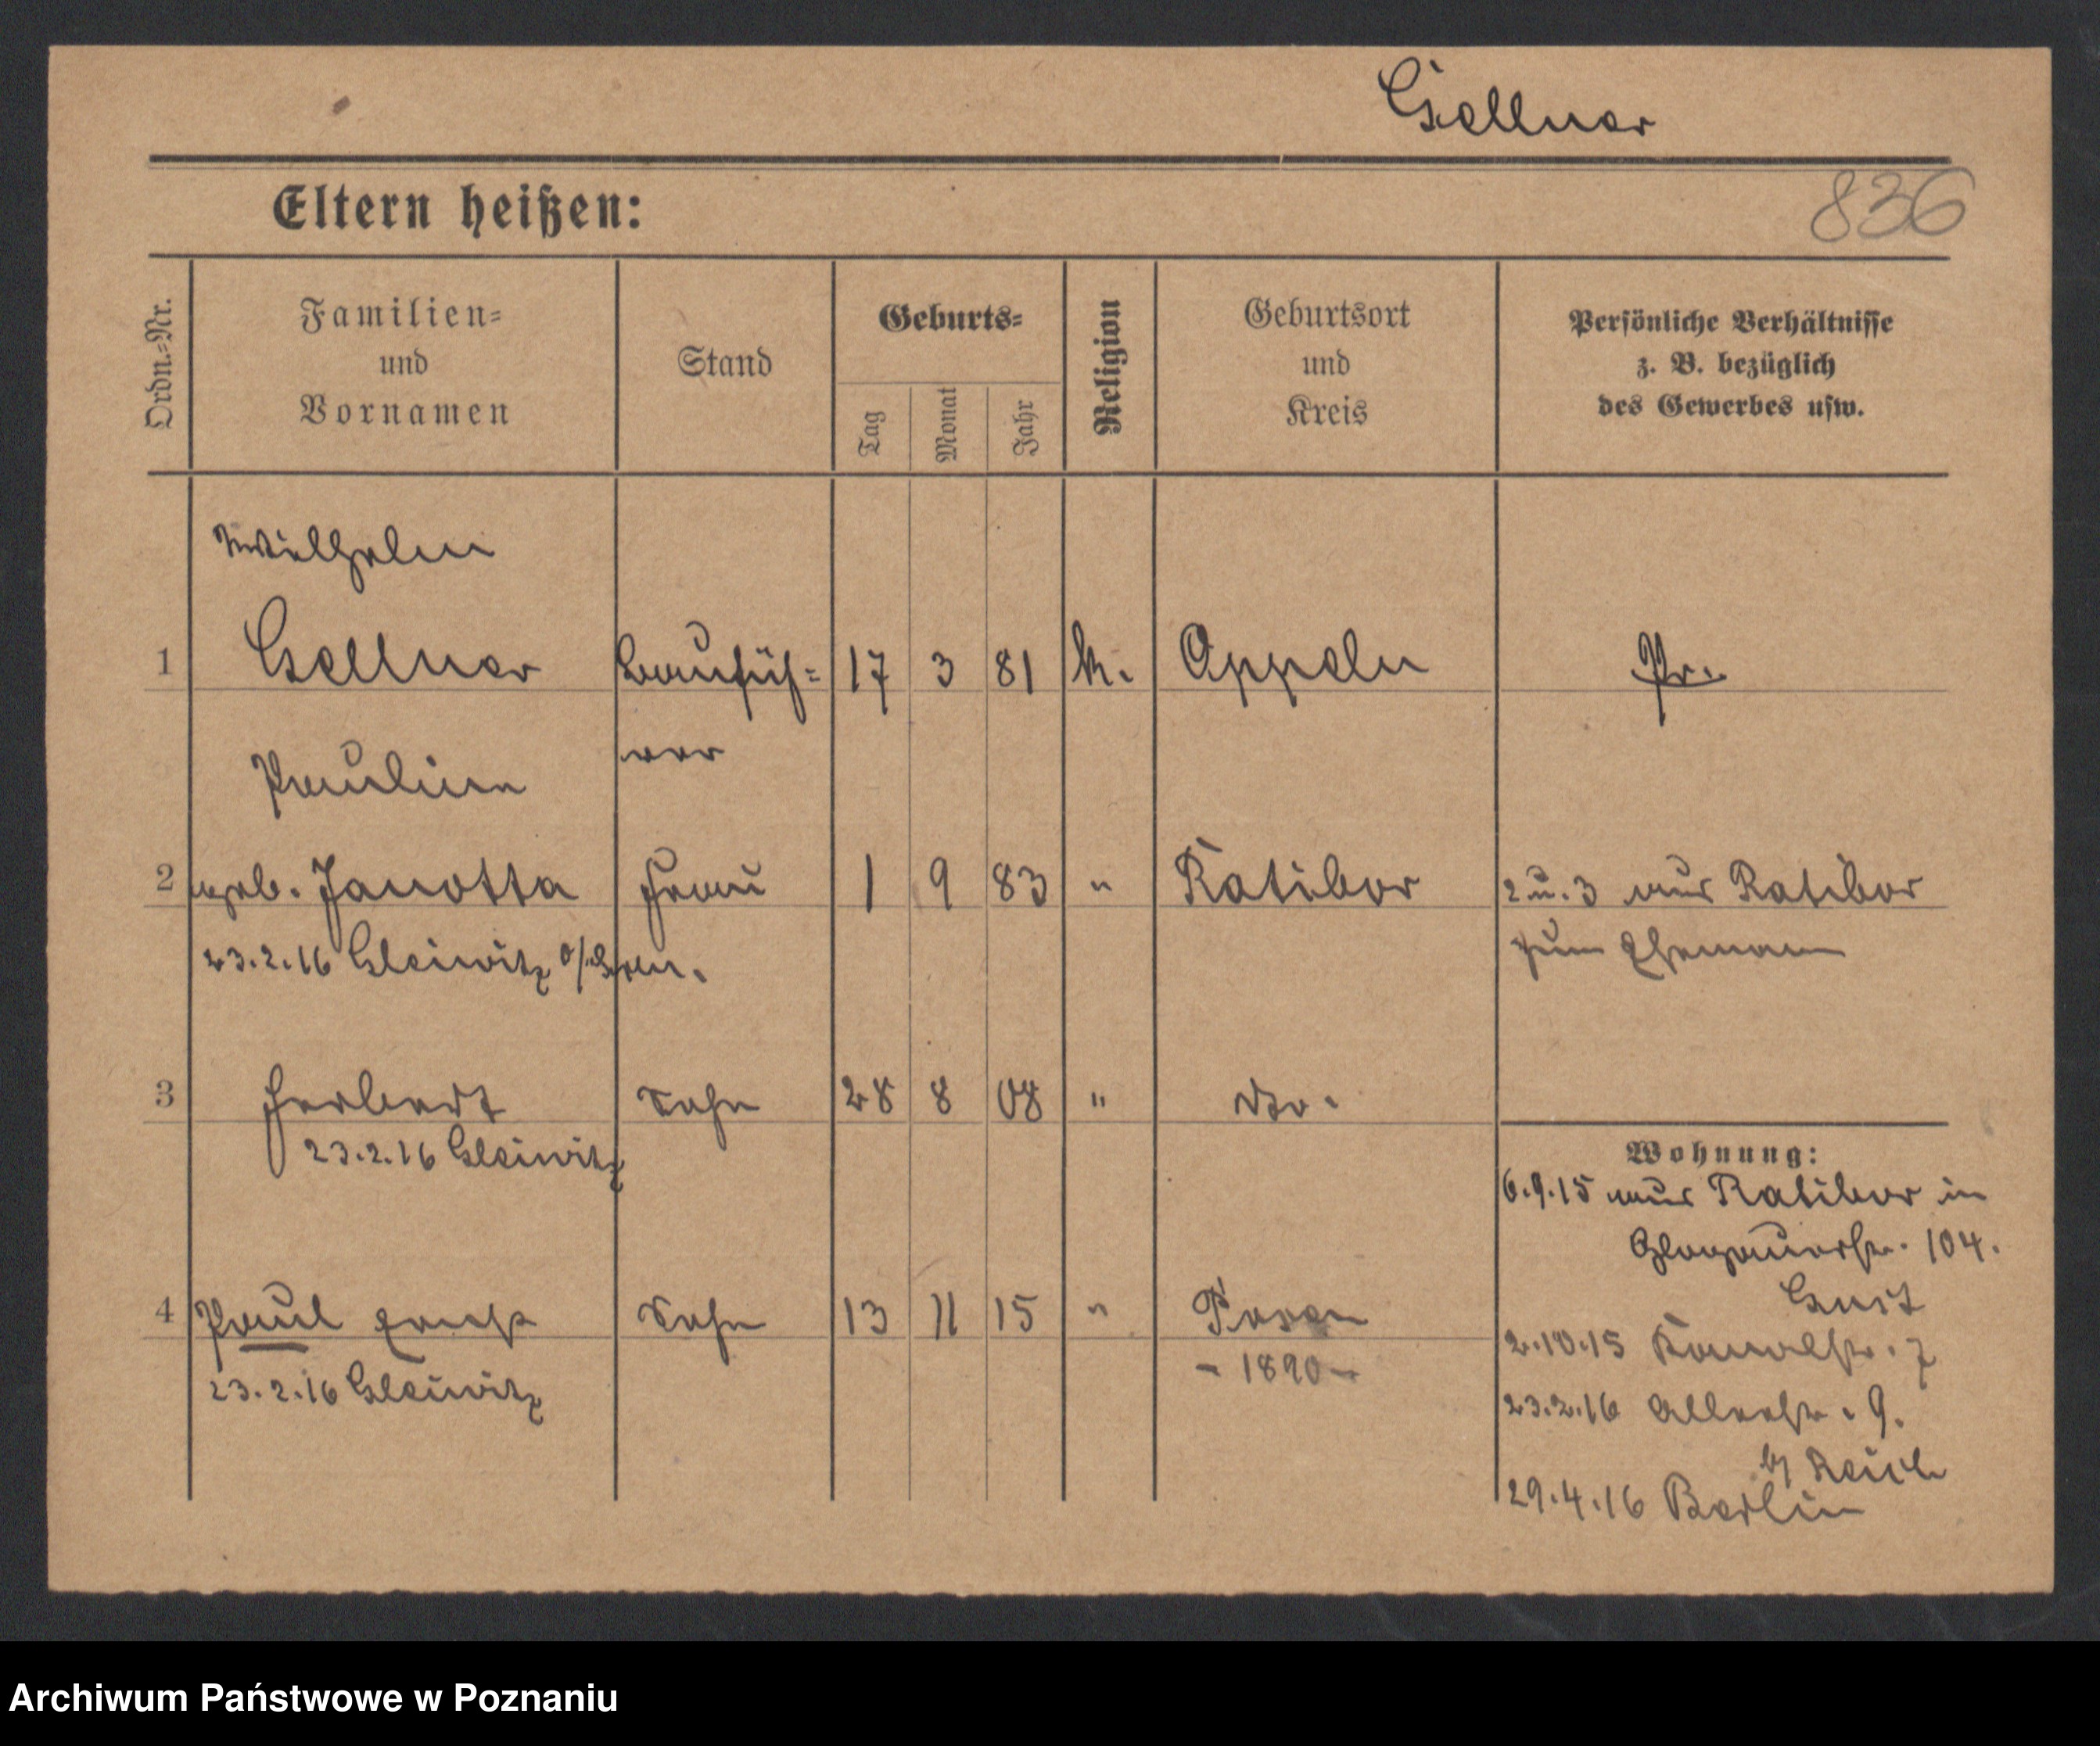 Gellner
Eltern heißen:
836
Ordn.-Nr.
Familien-
und
Vornamen
Stand
Geburts-
Tag
Monat
Jahr
Religion
Geburtsort
und
Kreis
Persönliche Verhältnisse
z. B. bezüglich
des Gewerbes usw.
Wilhelm
1 Gellner Baufüh- 17 3 81 k. Oppeln Pr.
rer
Paulina
2 geb. Janotta Frau 1 9 83 " Ratibor 2 u. 3 aus Ratibor
23.2.16 Gleiwitz zum Ehemann
3 Herbert Sohn 28 8 08 " do.
23.2.16 Gleiwitz
Wohnung:
6.9.15 aus Ratibor in
Glogauerstr. 104.
4 Paul Ernst Sohn 13 11 15 " Posen
- 1890 -
23.2.16 Gleiwitz
2.10.15 Kanalstr. 7
23.2.16 9.
b/ Reich
29.4.16 Berlin
Archiwum Państwowe w Poznaniu